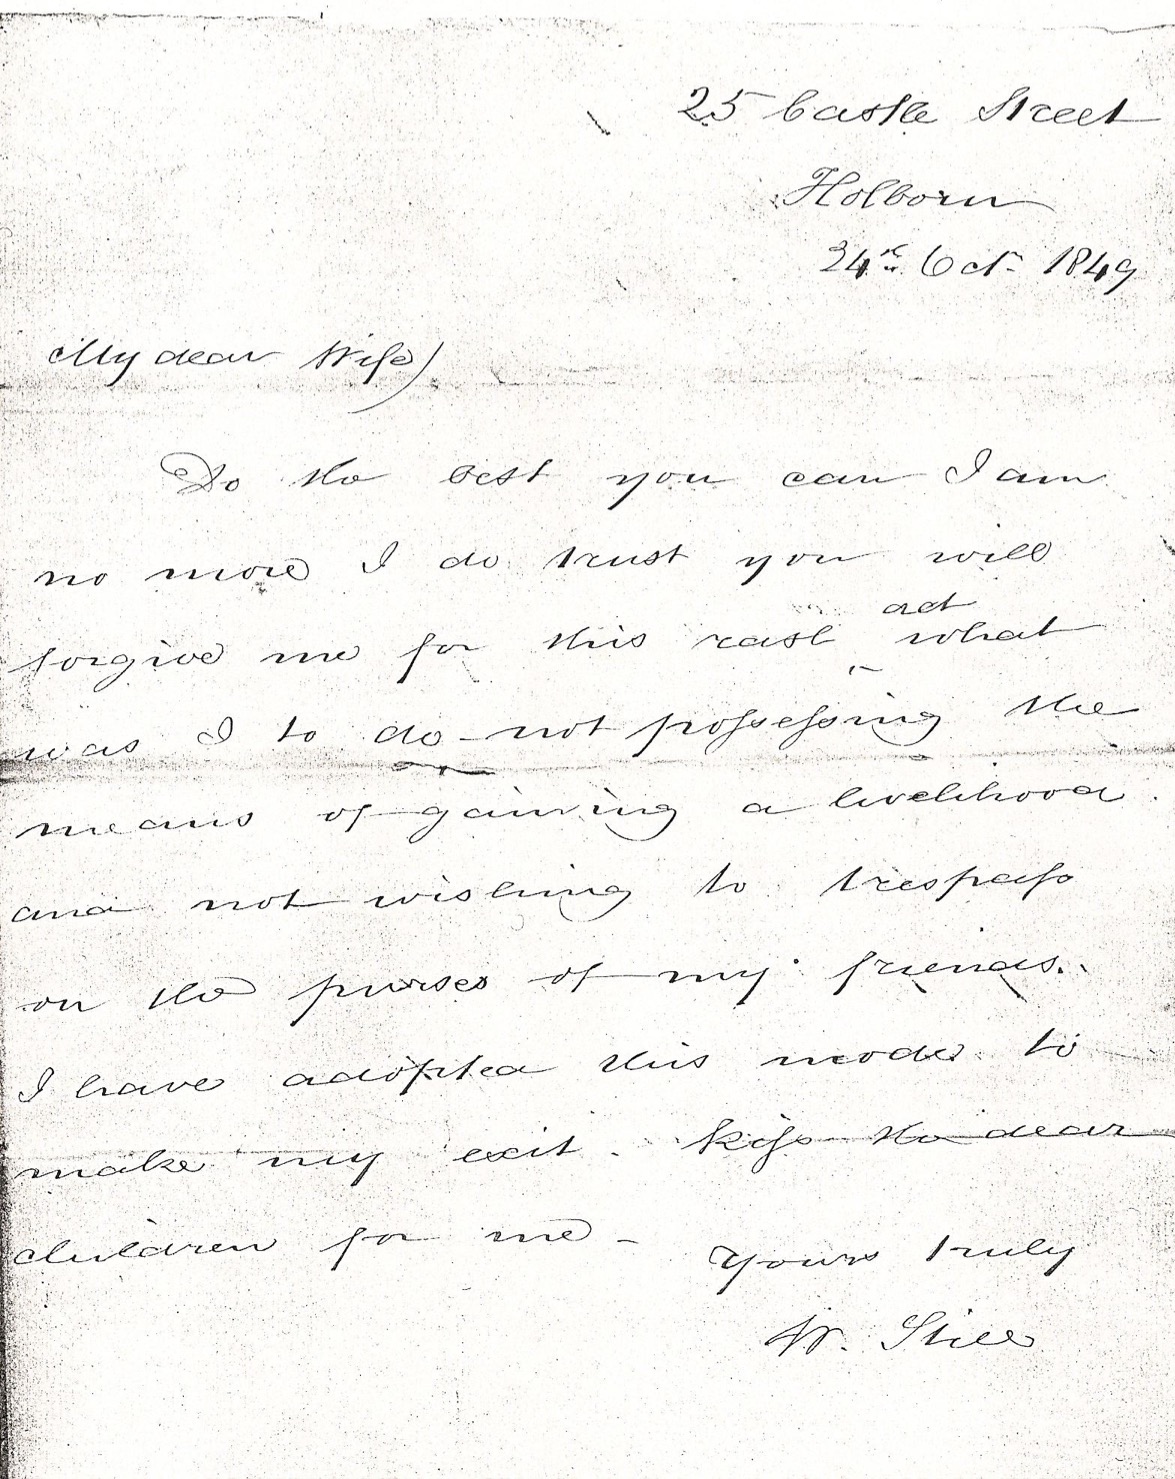 25 Castle Street
Holborn
24th Octr 1849
My dear Wife)
Do the best you can I am
no more I do trust you will
act
forgive me for this rash what
was I to do not possessing the
means of gaining a livelihood
and not wishing to trespass
on the purses of my friends.
I have adopted this mode to
make my exit. kiss the dear
children for me -
Yours truly
W. Still